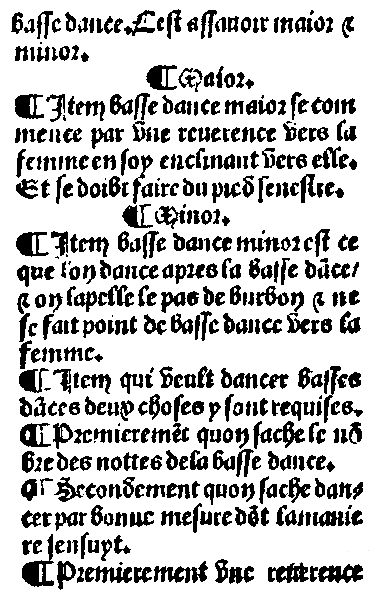 basse dance. Cest assauoir maior ⁊
minor.
¶ Maior.
¶ Item basse dance maior se com
mence par vne reuerence vers la
femme en soy enclinant vers elle.
Et se doibt faire du pied senestre.
¶ Minor.
¶ Item basse dance minor est ce
que lon dance apres la basse dāce/
⁊ on lapelle le pas de burbon ⁊ ne
se fait point de basse dance vers la
femme.
¶ Item qui veult dancer basses
dāces deux choses y sont requises.
¶ Premieremēt quon sache le nō
bre des nottes de la basse dance.
¶ Secondement quon sache dan⸗
cer par bonne mesure dōt la manie
re sensuyt.
¶ Premierement vne reuerence